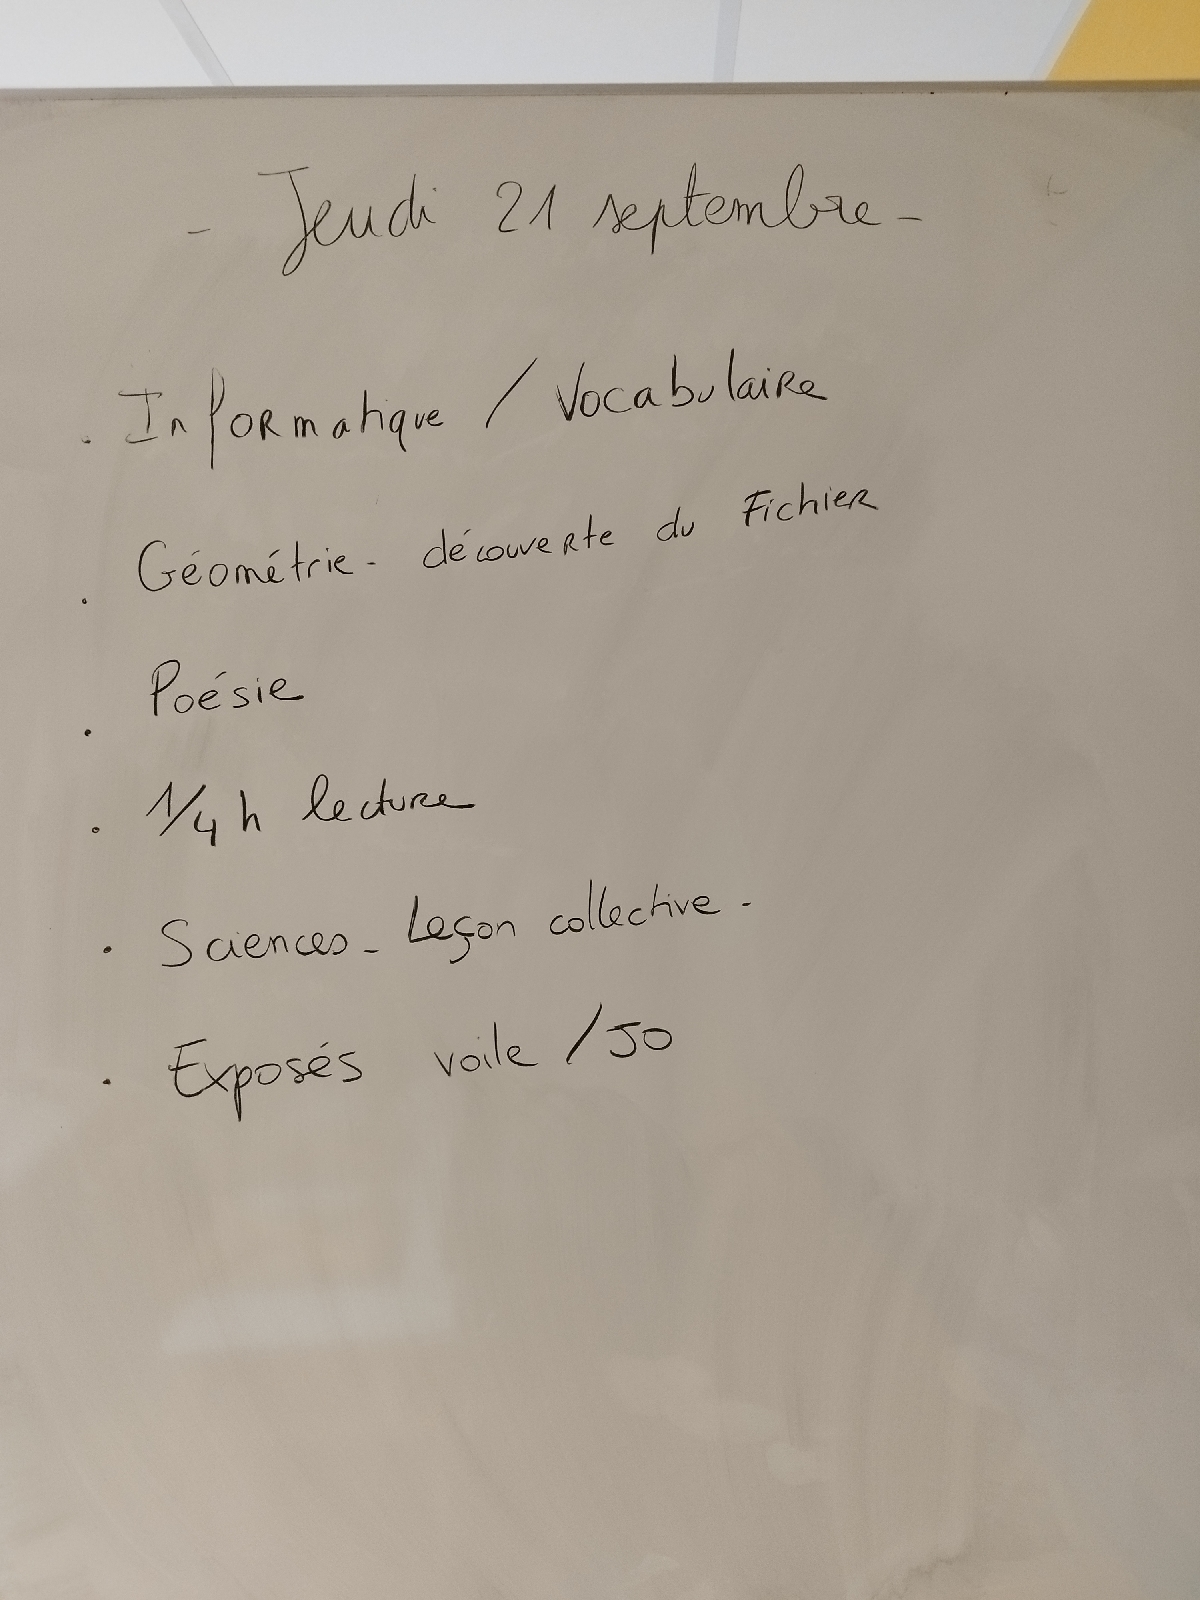 - Jeudi 21 septembre -
. Informatique / Vocabulaire
. Géométrie - découverte du Fichier
. Poésie
. 1/4 h lecture
. Sciences - Leçon collective -
. Exposés voile / JO